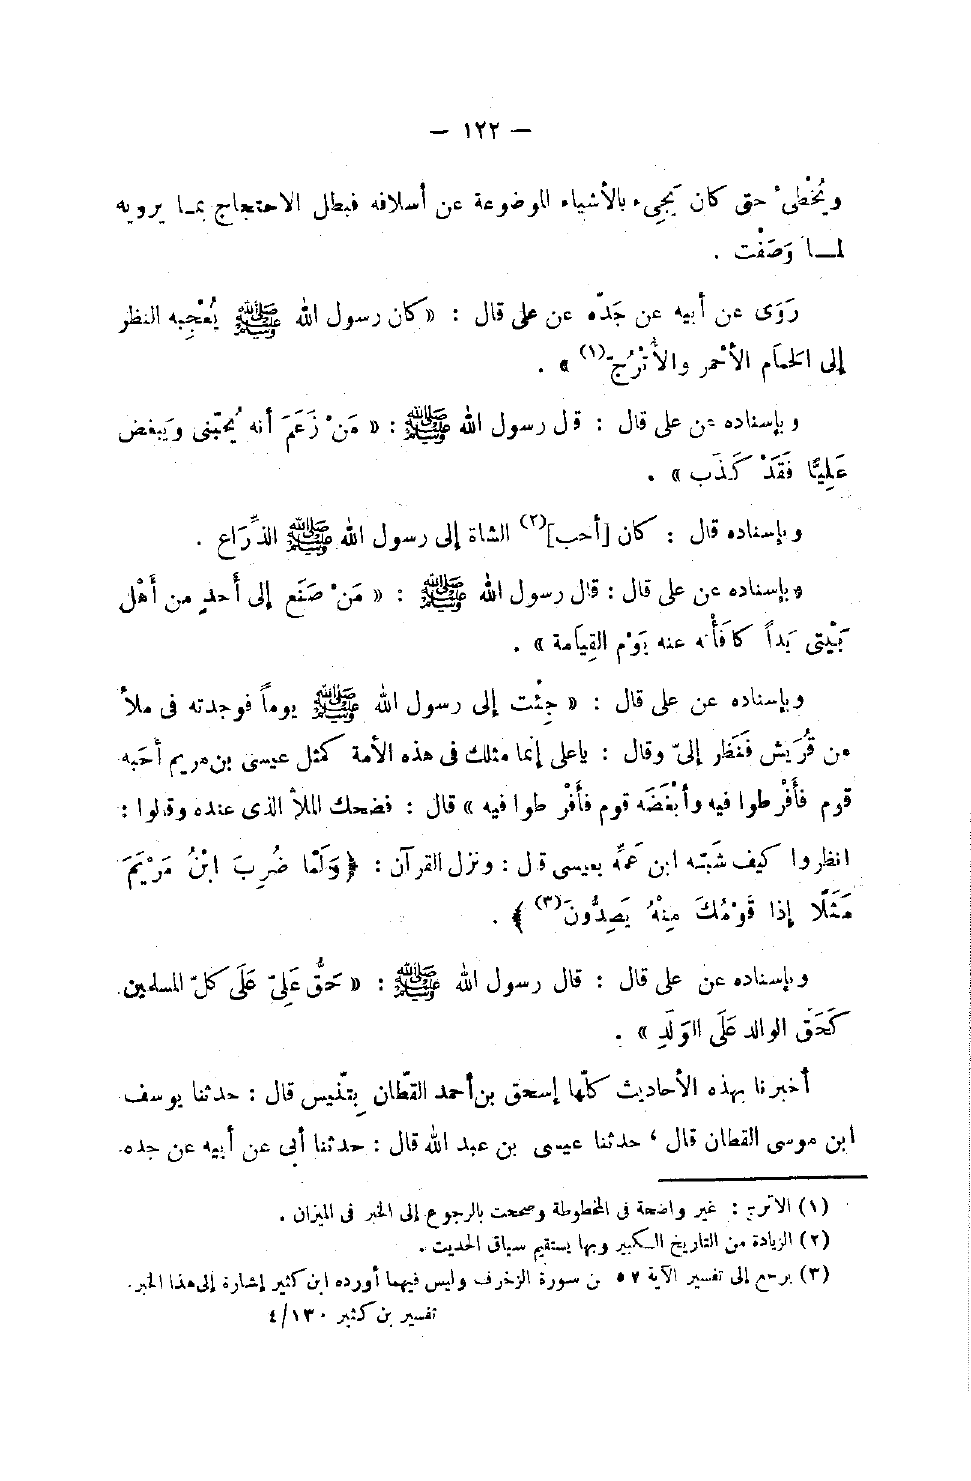 — ١٢٢ —
ويُخْطِئ حتى كان يَجِيء بالأشياء الموضوعة عن أسلافه فبطل الاحتجاج بمـا يرويه
لمـا وَصَفْت .
رَوَى عن أبيه عن جَدّه عن على قال : « كان رسول الله ﷺ يُعْجِبه النظر
إلى الحمَام الأحْمر والأُتْرُج(١) » .
وبإسناده عن على قال : قال رسول الله ﷺ : « مَنْ زَعَمَ أنه يُحبّنى وَيبغض
عَلِيًّا فَقَدْ كَذَب » .
وبإسناده قال : كان [أحب](٢) الشاة إلى رسول الله ﷺ الذِّرَاع .
وبإسناده عن على قال : قال رسول الله ﷺ : « مَنْ صَنَع إلى أَحدٍ من أَهْل
بَيْتى يَداً كَافَأْته عنه يَوْم القِيَامة » .
وبإسناده عن على قال : « جِئْت إلى رسول الله ﷺ يوماً فوجدته فى ملأ
من قُرَيش فَنَظر إلىّ وقال : ياعلى إنما مثلك فى هذه الأمة كمثل عيسى بن مريم أحَبه
قوم فأَفْرطوا فيه وأبْغَضَه قوم فأفْرطوا فيه » قال : فضحك الملأ الذى عنده وقالوا :
انظروا كيف شَبّه ابن عَمّه بعيسى قال : ونزل القرآن : ﴿ وَلَمَّا ضُرِبَ ابْنُ مَرْيَمَ
مَثَلًا إِذَا قَوْمُكَ مِنْهُ يَصِدُّونَ(٣) ﴾ .
وبإسناده عن على قال : قال رسول الله ﷺ : « حَقُّ عَلِىّ عَلَى كلّ المسلمين
كَحَق الوالد عَلَى الوَلَدِ » .
أخبرنا بهذه الأحاديث كلّها إسحق بن أحمد القطّان بِتنّيس قال : حدثنا يوسف
ابن موسى القطان قال ، حدثنا عيسى بن عبد الله قال : حدثنا أبى عن أبيه عن جده
(١) الأترج : غير واضحة فى المخطوطة وصححت بالرجوع إلى الخبر فى الميزان .
(٢) الزيادة من التاريخ الكبير وبها يستقيم سياق الحديث .
(٣) يرجع إلى تفسير الآية ٥٧ من سورة الزخرف وليس فيهما أورده ابن كثير إشارة إلى هذا الخبر.
تفسير بن كثير ٤/١٣٠